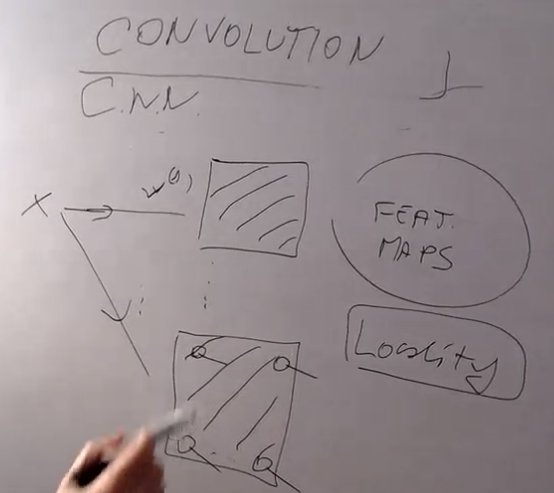 CONVOLUTION
C.N.N.
X
w(1)
FEAT.
MAPS
Locality